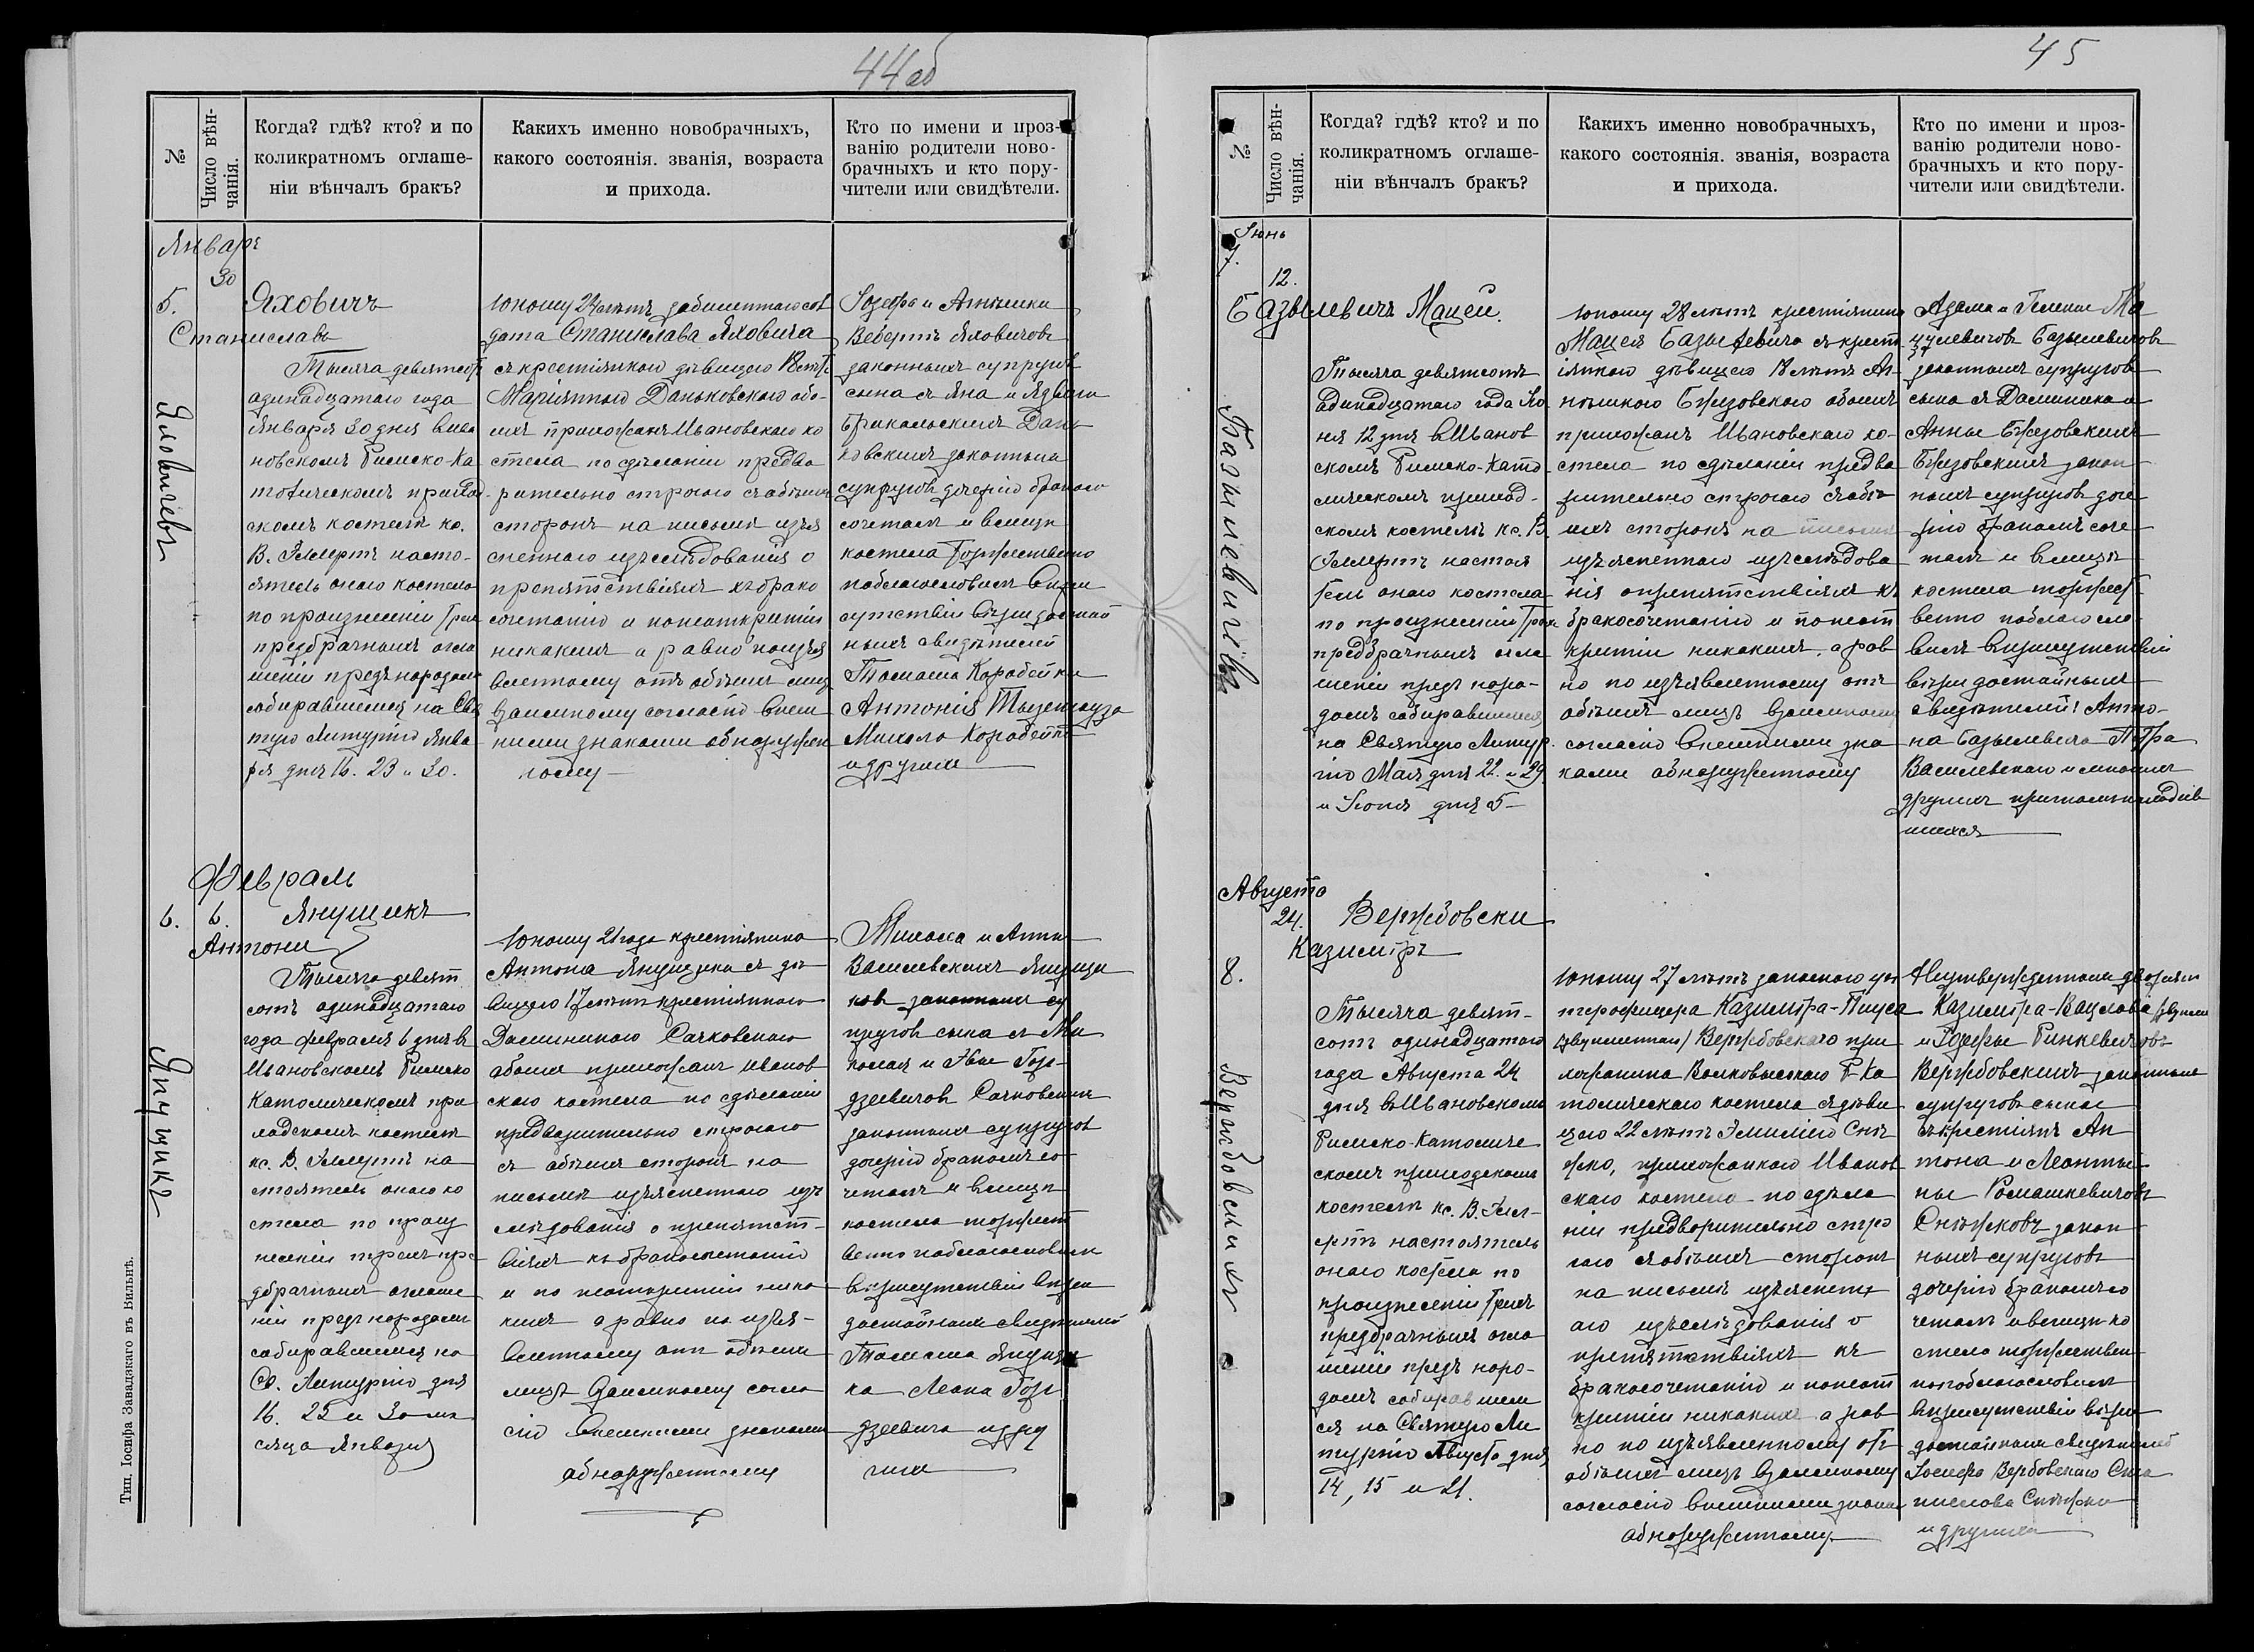 44об
№
Число вѣн-
чанія.
Когда? гдѣ? кто? и по
коликратномъ оглаше-
ніи вѣнчалъ бракъ?
Какихъ именно новобрачныхъ,
какого состоянія. званія, возраста
и прихода.
Кто по имени и проз-
ванію родители ново-
брачныхъ и кто пору-
чители или свидѣтели.
Январь
30
5.
Яховичъ
Станиславъ
Тысяча девятсотъ
одинадцатаго года
Января 30 дня в Ива
новскомъ Римско-Ка
толическомъ приход-
скомъ костелѣ кс.
В. Эллертъ насто-
ятель онаго костела
по произнесеніи трех
предбрачныхъ огла
шеній предъ народомъ
собиравшемся на Свя
тую Литургію Янва
ря дня 16. 23 и 30.
Юношу 24 лѣтъ сол
дата Станислава Яховича
съ крестьянкою дѣвицею 18 лѣтъ
Маріянною Даньковскою обо-
ихъ прихожанъ Ивановскаго ко
стела по сдѣланіи предва
рительно строгаго съ обѣихъ
сторонъ на письмѣ изъя
сненнаго изслѣдованія о
препятствіяхъ къ брако
сочетанію и понеоткрытіи
никакихъ а равно по изъя
вленному отъ обѣихъ лицъ
взаимному согласію внеш
ними знаками обнаружен
ному
Іозефа и Антонины
Яховичовъ
законныхъ супруговъ
сына съ Яна и Ядвиги
Дань
ковскихъ законныхъ
супруговъ дочерію бракомъ
сочеталъ и в лицѣ
костела торжественно
поблагословилъ въ при
сутствіи вѣридостой
ныхъ свидѣтелей
Томаша Коробейки
Антонія
Михала Коробейки
и другихъ
Яховичевъ
Февраль
6.
6.
Янущикъ
Антони
Тысяча девят
сотъ одинадцатаго
года Февраля 6 дня в
Ивановскомъ Римско
Католическомъ при
ходскомъ костелѣ
кс. В. Эллертъ на
стоятель онаго ко
стела по произ
несеніи трехъ пре
дбрачныхъ оглаше
ній предъ народомъ
собиравшемся на
Св. Литургію дня
16. 23 и 30 мѣ
сяца Января
Юношу 21 года крестьянина
Антона Янущика съ дѣ
вицею 17 лѣтъ крестьянкою
Доминикою Сачковскою
обоихъ прихожанъ Иванов
скаго костела по сдѣланіи
предварительно строгаго
съ обѣихъ сторонъ на
письмѣ изъясненнаго изс
лѣдованія о препятст-
віяхъ къ бракосочетанію
и по неоткрытіи ника
кихъ а равно по изъя-
вленному отъ обѣихъ
лицъ взаимному согла
сію внешними знаками
обнаруженному
Михала и Анны
Василевскихъ Янущи
ковъ законныхъ су
пруговъ сына съ Ми
колая и Эвы Гор-
дзеевичовъ Сачковскихъ
законныхъ супруговъ
дочерію бракомъ со
четалъ и в лицѣ
костела торжест
венно поблагословилъ
въ присутствіи вѣри
достойныхъ свидѣтелей
Томаша Янущи
ка Леона Гор
дзеевича и дру
гихъ
Янущикъ
Тип. Іосифа Завадзкаго въ Вильнѣ.
45
№
Число вѣн-
чанія.
Когда? гдѣ? кто? и по
коликратномъ оглаше-
ніи вѣнчалъ бракъ?
Какихъ именно новобрачныхъ,
какого состоянія. званія, возраста
и прихода.
Кто по имени и проз-
ванію родители ново-
брачныхъ и кто пору-
чители или свидѣтели.
Іюнь
7.
12.
Базылевичъ Мацей
Тысяча девятсотъ
одинадцатаго года Ію
ня 12 дня в Иванов
скомъ Римско-Като
лическомъ приход-
скомъ костелѣ кс. В.
Эллертъ настоя
тель онаго костела
по произнесеніи трехъ
предбрачныхъ огла
шеній предъ наро-
домъ собиравшемся
на Святую Литур-
гію Мая дня 22. и 29
и Іюня дня 5
Юношу 28 лѣтъ крестьянина
Мацея Базылевича съ крест
іянкою дѣвицею 18 лѣтъ Ан-
ною обоихъ
прихожанъ Ивановскаго ко-
стела по сдѣланіи предва
рительно строгаго съ обѣ
ихъ сторонъ на письмѣ
изъясненнаго изслѣдова
нія о препятствіяхъ къ
бракосочетанію и понеот
крытіи никакихъ, а рав
но по изъявленному отъ
обѣихъ лицъ взаимному
согласію внешними зна
ками обнаруженному
Адама и Гелены Ма
Базылевичовъ
законныхъ супруговъ
сына съ Доминика и
Анны
закон
ныхъ супруговъ доче
рію бракомъ соче
талъ и в лицѣ
костела торжест
венно поблагосло
вилъ въ присутствіи
вѣридостойныхъ
свидѣтелей: Анто-
на Базылевича Петра
Василевскаго и многихъ
другихъ притомъ находив
шихся
Базылевичевъ
Августа
24.
Вержбовски
Казиміръ
8.
Тысяча девят-
сотъ одинадцатаго
года Августа 24
дня в Ивановскомъ
Римско-Католиче
скомъ приходскомъ
костелѣ кс. В. Элл-
ертъ настоятель
онаго костела по
произнесеніи трехъ
предбрачныхъ огла
шеній предъ наро-
домъ собиравшем
ся на Святую Ли
тургію Августа дня
14, 15 и 21.
Юношу 27 лѣтъ запаснаго ун
теръофицера Казиміра-Піуса
(двуименнаго) Вержбовскаго при
хожанина Волковыскаго Р-Ка
толическаго костела съ дѣви
цею 22 лѣтъ Эмиліею Снѣ
жко, прихожанкою Иванов
скаго костела по сдѣла
ніи предворительно стро
гаго съ обѣихъ сторонъ
на письмѣ изъясненн
аго изслѣдованія о
препятствіяхъ къ
бракосочетанію и понеот
крытіи никакихъ а рав
но по изъявленному отъ
обѣихъ лицъ взаимному
согласію внешними знака
обнаруженному
Неутвержденныхъ дворянъ
Казиміра-Вацлава
и Юзефы Ринкевичовъ
Вержбовскихъ законныхъ
супруговъ сына
съ крестьянъ Ан
тона и Леонты-
ны Ромашкевичовъ
Снѣжковъ закон
ныхъ супруговъ
дочерію бракомъ со
четалъ и в лицѣ ко
стела торжествен
но поблагословилъ
въ присутствіи вѣри
достойныхъ свидѣтелей
Іосифа Вербовскаго Ста
нислава Снѣжки
и другихъ
Вержбовскихъ